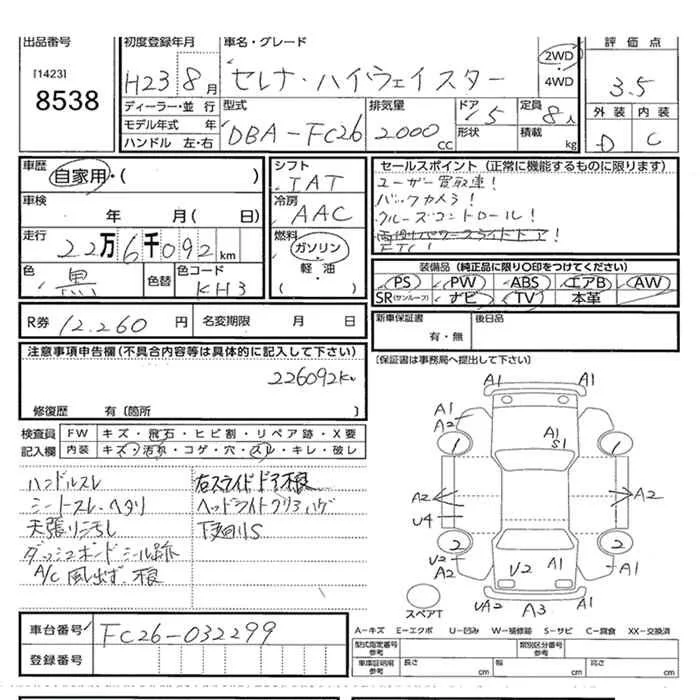 出品番号
[1423]
8538
初度登録年月
H23 8月
車名・グレード
セレナ・ハイウェイスター
2WD
・
4WD
評価点
3.5
外装 内装
D C
ディーラー・並行
モデル年式 年
ハンドル 左・右
型式
DBA-FC26
排気量
2000 cc
ドア
5
形状
定員
8人
積載
kg
車歴
自家用・( )
車検
年 月( 日)
走行
22万6千092km
色
黒
色替
色コード
KH3
シフト
IAT
冷房
AAC
燃料
ガソリン
・
軽油
( )
セールスポイント(正常に機能するものに限ります)
ユーザー買取車!
バックカメラ!
クルーズコントロール!
両側パワースライドドア!
ETC!
装備品(純正品に限り〇印をつけてください)
PS PW ABS エアB AW
SR(サンルーフ) ナビ TV 本革
R券 12,260円
名変期限 月 日
新車保証書
有・無
後日品
(保証書は事務局へ提出して下さい)
注意事項申告欄(不具合内容等は具体的に記入して下さい)
226092km
修復歴 有(箇所
検査員
記入欄
FW キズ・飛石・ヒビ割・リペア跡・X要
内装 キズ・汚れ・コゲ・穴・スレ・キレ・破レ
ハンドルスレ
シートスレ・ヘタリ
天張り汚れ
ダッシュボードシール跡
A/C 風出ず 根
右スライドドア不良
ヘッドライトクリアハゲ
下廻りS
A1 A1
A1
A2
A1
S1
A1
1 1
A2 A2
U4
2 2
U2
A2
U2
A1
A1
UA2 A3 U2
スペアT
A-キズ E-エクボ U-凹み W-補修跡 S-サビ C-腐食 XX-交換済
車台番号
FC26-032299
登録番号
型式指定番号
参考
類別区分番号
参考
車庫証明用
参考
長さ cm
幅 cm
高さ cm